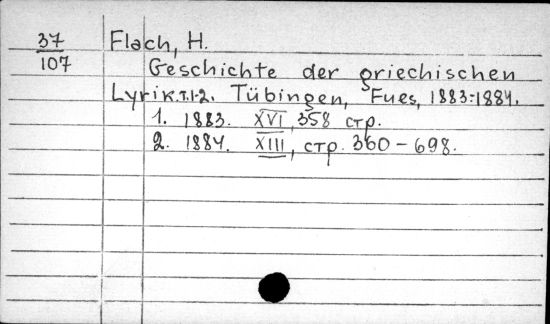 37
107
Flach, H.
Geschichte der griechischen
Lyrik.T.1-2. Tübingen, Fues, 1883-1884.
1. 1883. XVI, 358 стр.
2. 1884. XIII, стр. 360-698.